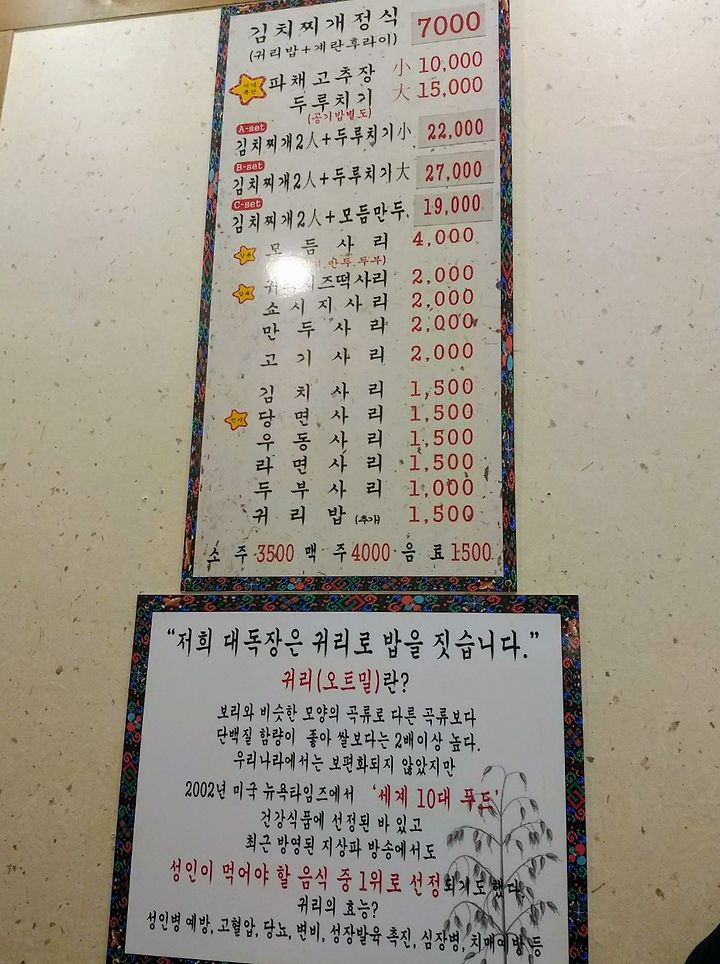 김치찌개정식 7000
(귀리밥+계란후라이)
파채고추장 小 10,000
두루치기 大 15,000
(공기밥별도)
A-set
김치찌개2人+두루치기小 22,000
B-set
김치찌개2人+두루치기大 27,000
C-set
김치찌개2人+모듬만두 19,000
모듬사리 4,000
만두.두부)
치즈떡사리 2,000
소시지사리 2,000
만두사리 2,000
고기사리 2,000
김치사리 1,500
당면사리 1,500
우동사리 1,500
라면사리 1,500
두부사리 1,000
귀리밥(추가) 1,500
소주 3500 맥주 4000 음료 1500
“저희 대독장은 귀리로 밥을 짓습니다.”
귀리(오트밀)란?
보리와 비슷한 모양의 곡류로 다른 곡류보다
단백질 함량이 좋아 쌀보다는 2배이상 높다.
우리나라에서는 보편화되지 않았지만
2002년 미국 뉴욕타임즈에서 ‘세계 10대 푸드’
건강식품에 선정된 바 있고
최근 방영된 지상파 방송에서도
성인이 먹어야 할 음식 중 1위로 선정되기도 했다.
귀리의 효능?
성인병 예방, 고혈압, 당뇨, 변비, 성장발육 촉진, 심장병, 치매예방 등